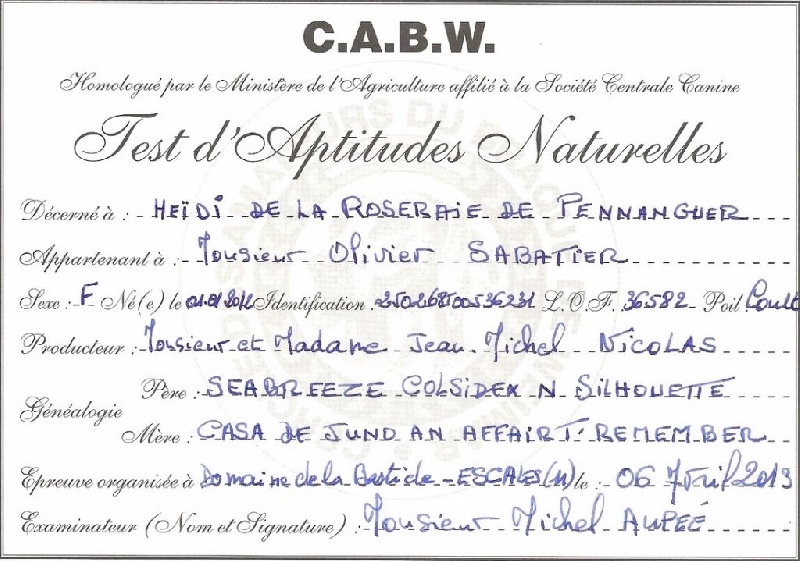 C.A.B.W.
Homologué par le Ministère de l'Agriculture affilié à la Société Centrale Canine
Test d'Aptitudes Naturelles
Décerné à : HEÏDI DE LA ROSERAIE DE PENNANGUER
Appartenant à : Monsieur Olivier SABATIER
Sexe : F Né(e) le Identification : 250268500536231 L.O.F. 36582 Poil Court
Producteur : Monsieur et Madame Jean Michel NICOLAS
Généalogie
Père : SEABREEZE COLSIDEX N SILHOUETTE
Mère : CASA DE JUNO AN AFFAIR T' REMEMBER
Epreuve organisée à Domaine de la Bastide - ESCALES (11) le : 06 Avril 2013
Examinateur (Nom et Signature) : Monsieur Michel AUPEÉ